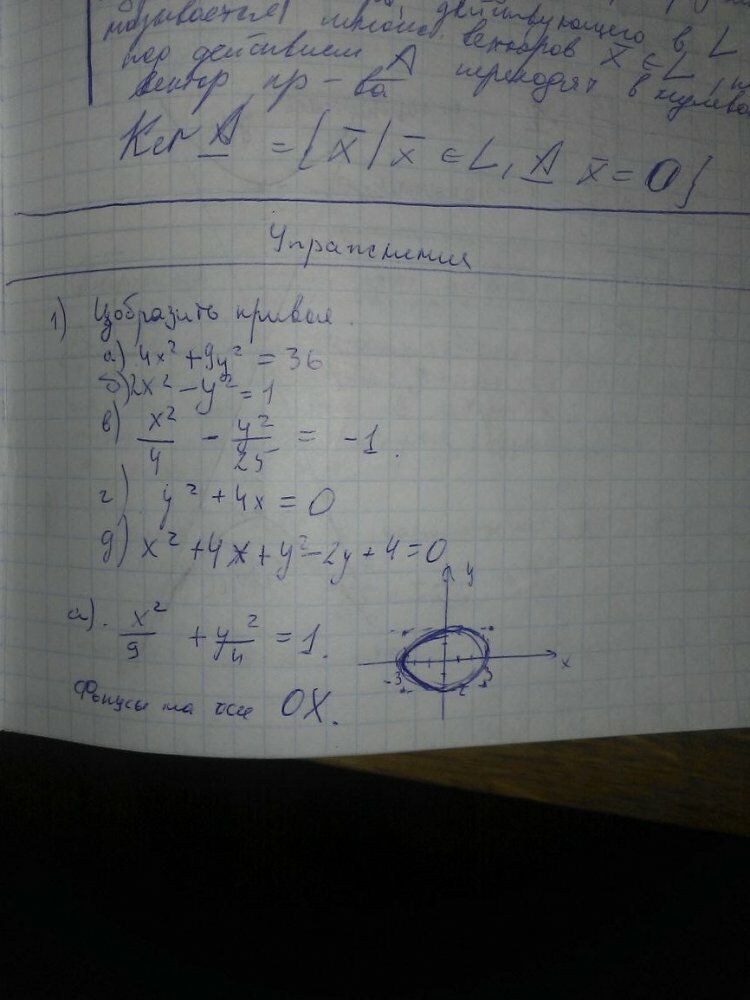 называется действующего в L
под действием A векторов x̄ ∈ L,
вектор пр-ва переходят в нулево
Ker A = { x̄ / x̄ ∈ L, A x̄ = 0 }
Упражнения
1) Изобразить кривая.
а) 4x² + 9y² = 36
б) 2x² - y² = 1
в) x²/4 - y²/25 = -1.
г) y² + 4x = 0
д) x² + 4x + y² - 2y + 4 = 0
а). x²/9 + y²/4 = 1.
y
x
-3 3
-2
Фокусы на оси OX.